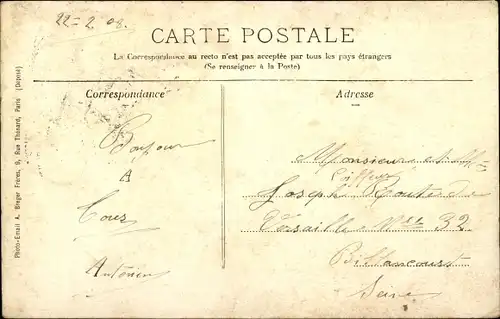 22=2 08.
CARTE POSTALE
La Correspondance au recto n'est pas acceptée par tous les pays étrangers
(Se renseigner à la Poste)
Correspondance
Bonjour
A
Tous
Antonin
Adresse
Monsieur et
Coiffeur
Joseph Route de
Versaille Nº 32
Billancourt
Seine
Photo-Email A. Breger Frères, 9, Rue Thénard, Paris (Déposé)